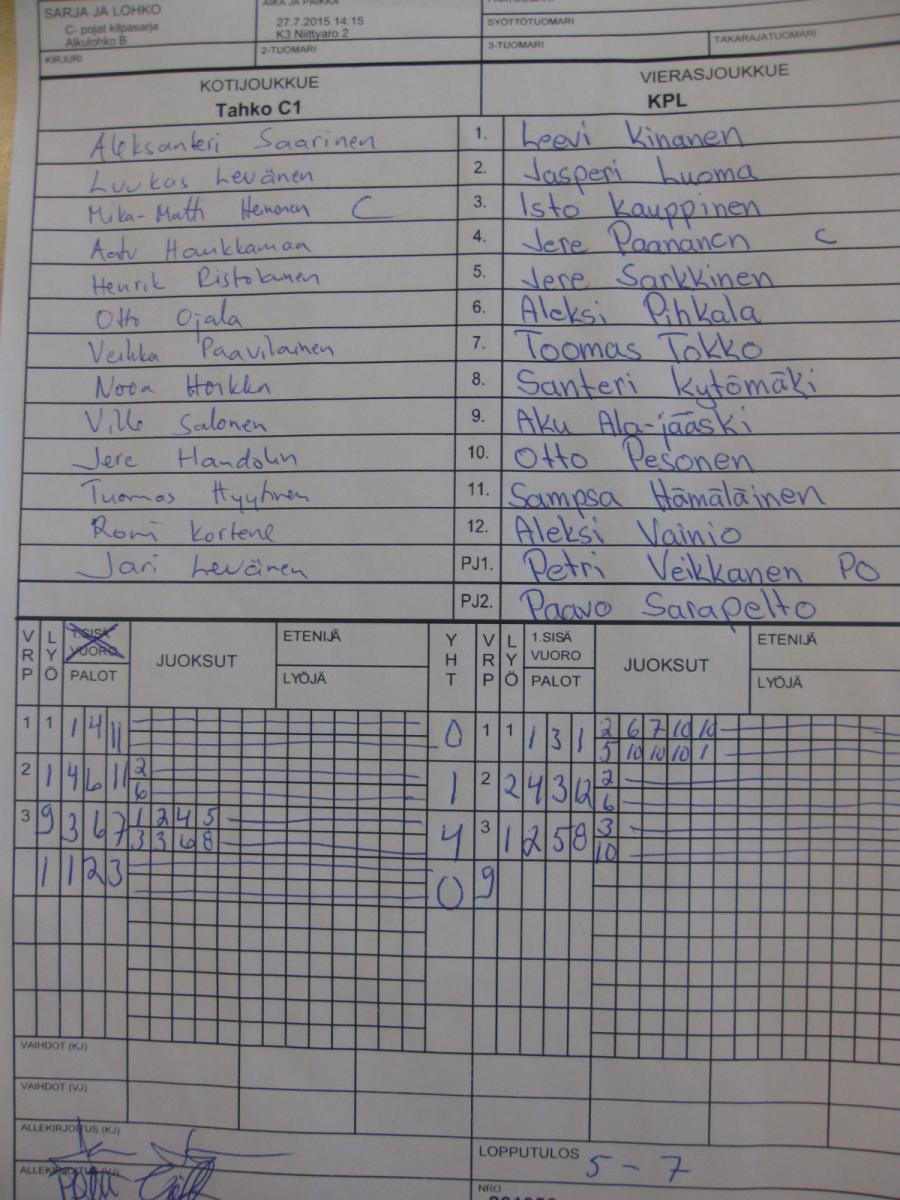 SARJA JA LOHKO
C- pojat kilpasarja
Alkulohko B
AIKA JA PAIKKA
27.7.2015 14:15
K3 Niittyaro 2
SYÖTTÖTUOMARI
KIRJURI
2-TUOMARI
3-TUOMARI
TAKARAJATUOMARI
KOTIJOUKKUE
Tahko C1
VIERASJOUKKUE
KPL
Aleksanteri Saarinen 1. Leevi Kinanen
Luukas Levänen 2. Jasperi Luoma
Mika-Matti Hemonen C 3. Isto Kauppinen
Aatu Haukkamaa 4. Jere Paananen C
Henrik Ristolainen 5. Jere Sarkkinen
Otto Ojala 6. Aleksi Pihkala
Veikka Paavilainen 7. Toomas Tokko
Nooa Hoikka 8. Santeri Kytömäki
Ville Salonen 9. Aku Ala-jääski
Jere Handolin 10. Otto Pesonen
Tuomas Hyytinen 11. Sampsa Hämäläinen
Romi 12. Aleksi Vainio
Jari Levänen PJ1. Petri Veikkanen PO
PJ2. Paavo Sarapelto
VRP LYÖ 1.SISÄ VUORO PALOT JUOKSUT ETENIJÄ LYÖJÄ YHT VRP LYÖ 1.SISÄ VUORO PALOT JUOKSUT ETENIJÄ LYÖJÄ
1 1 1 4 11 0 1 1 1 3 1 2 6 7 10 10
5 10 10 10 1
2 1 4 6 11 2 1 2 2 4 3 12 2
6 6
3 9 3 6 7 1 2 4 5 4 3 1 2 5 8 3
3 3 6 8 10
1 1 2 3 0 9
VAIHDOT (KJ)
VAIHDOT (VJ)
ALLEKIRJOITUS (KJ)
LOPPUTULOS 5 - 7
NRO